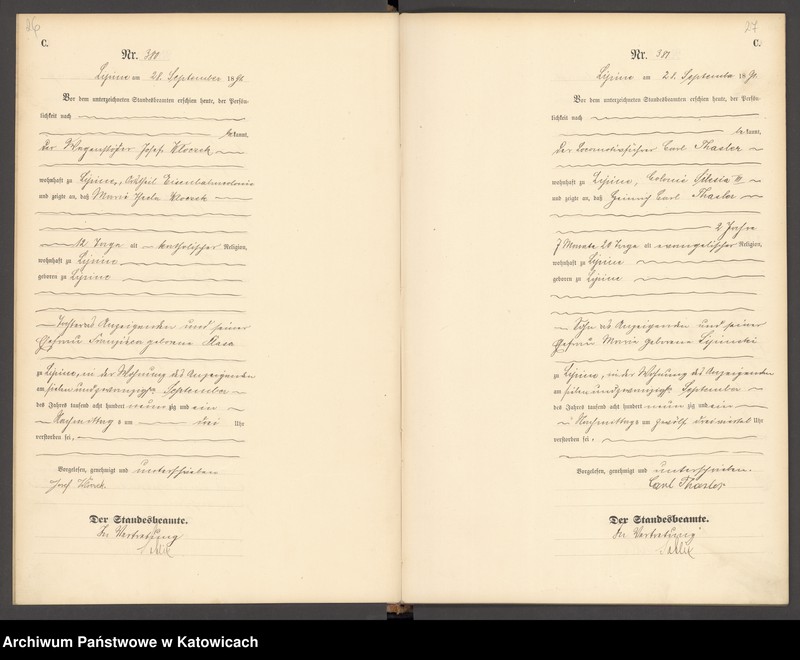 26
C.
Nr. 380
Lipine am 28. September 1891.
Vor dem unterzeichneten Standesbeamten erschien heute, der Persön-
lichkeit nach
bekannt,
der Wagenstößer Josef Kloczek
wohnhaft zu Lipine, Ortstheil Eisenbahncolonie
und zeigte an, daß Marie Hedw Kloczek
12 Tage alt katholischer Religion,
wohnhaft zu Lipine
geboren zu Lipine
Tochter des Anzeigenden und seiner
Ehefrau Franziska geborene Rasa
zu Lipine, in der Wohnung des Anzeigenden
am sieben und zwanzigsten September
des Jahres tausend acht hundert neun zig und ein
Nachmittags um drei Uhr
verstorben sei.
Vorgelesen, genehmigt und unterschrieben
Josef Kloczek.
Der Standesbeamte.
In Vertretung
27
C.
Nr. 381
Lipine am 28. September 1891.
Vor dem unterzeichneten Standesbeamten erschien heute, der Persön-
lichkeit nach
bekannt,
der Locomotivführer Carl Thasler
wohnhaft zu Lipine, Colonie Silesia III
und zeigte an, daß Heinrich Carl Thasler
2 Jahre
7 Monate 20 Tage alt evangelischer Religion,
wohnhaft zu Lipine
geboren zu Lipine
Sohn des Anzeigenden und seiner
Ehefrau Marie geborene Lipinski
zu Lipine, in der Wohnung des Anzeigenden
am sieben und zwanzigsten September
des Jahres tausend acht hundert neun zig und ein
Nachmittags um zwölf dreiviertel Uhr
verstorben sei.
Vorgelesen, genehmigt und unterschrieben.
Carl Thasler
Der Standesbeamte.
In Vertretung
Archiwum Państwowe w Katowicach